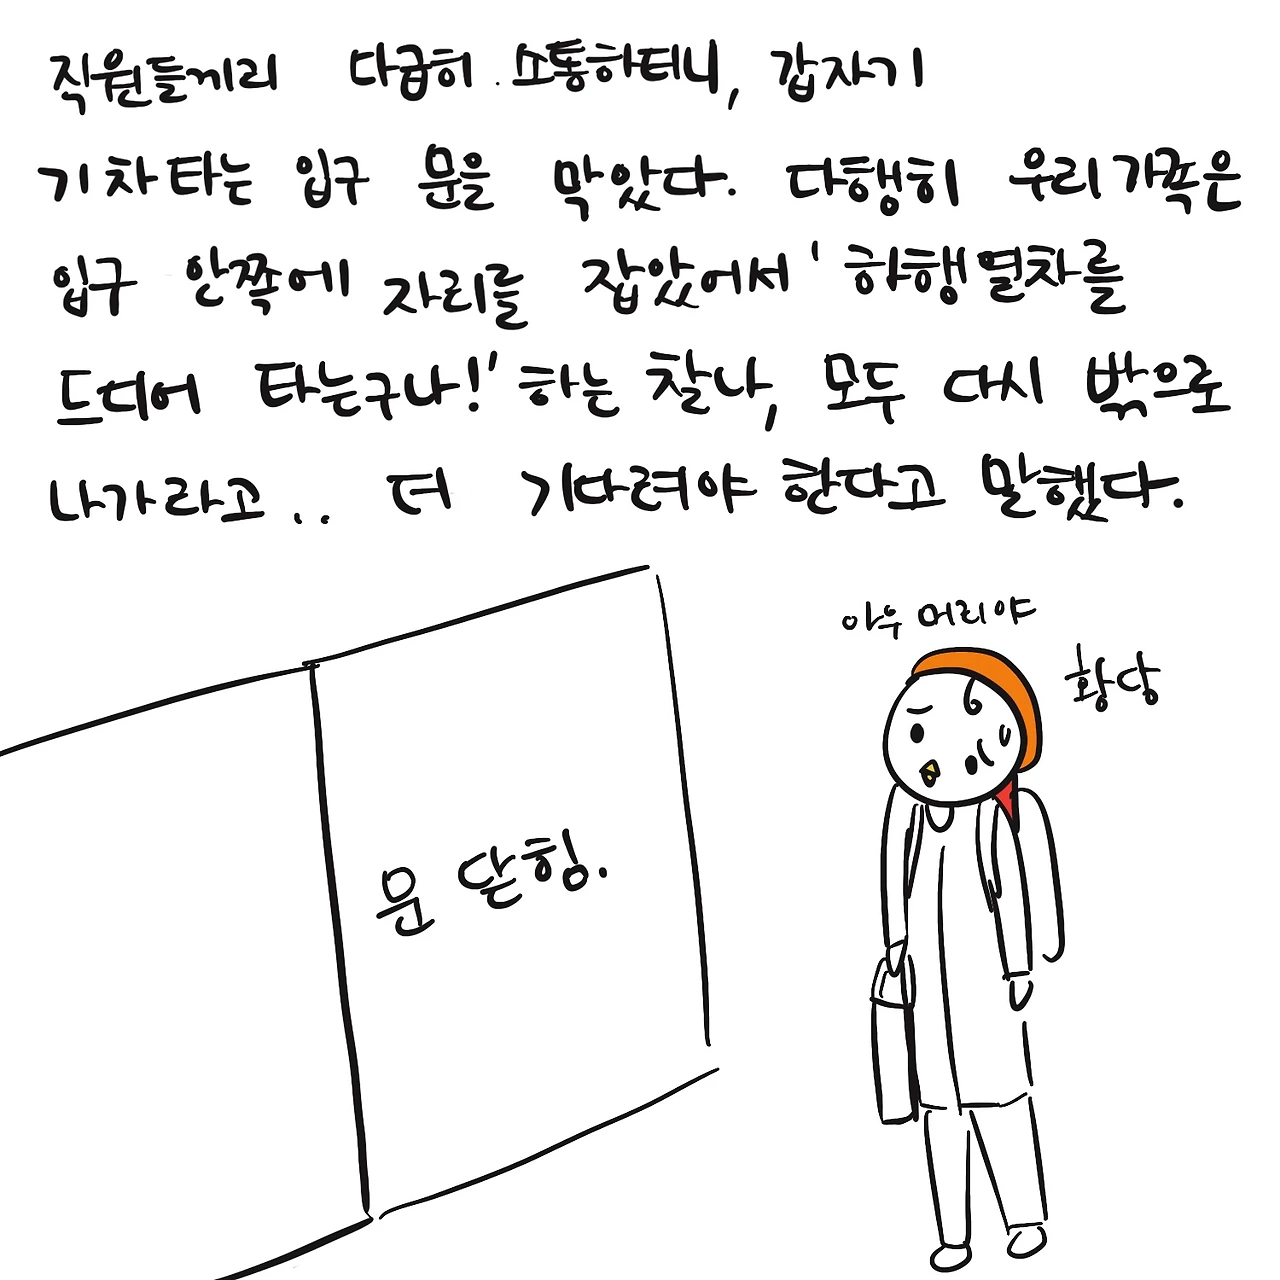 직원들끼리 다급히 소통하더니, 갑자기
기차 타는 입구 문을 막았다. 다행히 우리가족은
입구 안쪽에 자리를 잡았어서 '하행열차를
드디어 타는구나!' 하는 찰나, 모두 다시 밖으로
나가라고.. 더 기다려야 한다고 말했다.
아우 머리야
황당
문 닫힘.